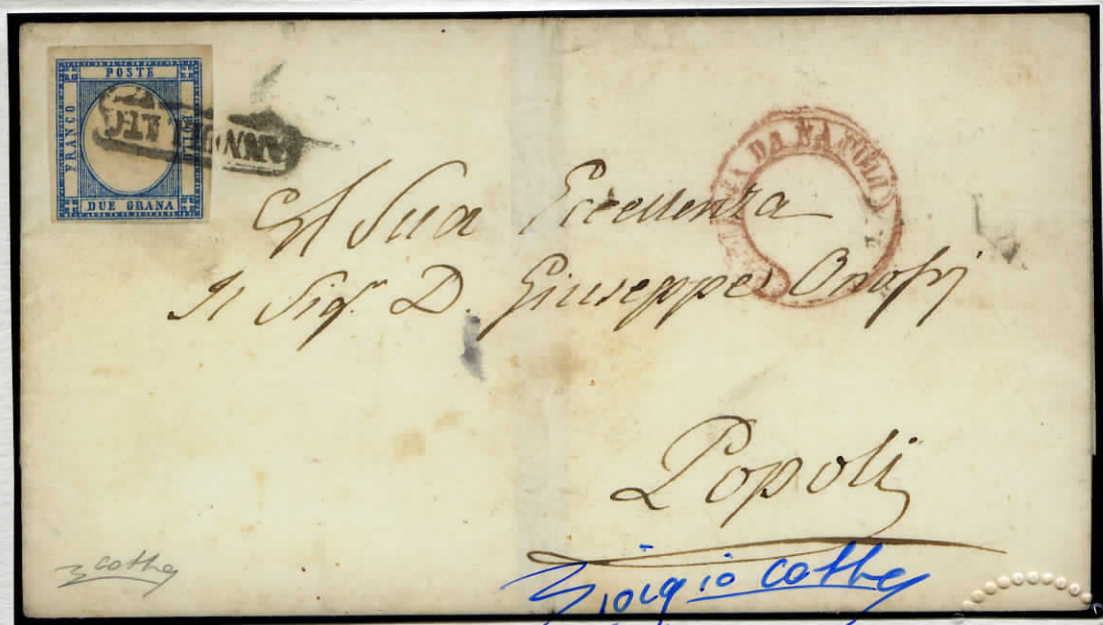 POSTE
FRANCO
BOLLO
DUE GRANA
ANNULLATO
DA NAPOLI
A Sua Eccellenza
Il Sigr. D. Giuseppe Onofrj
Popoli
Giorgio Colla
Colla